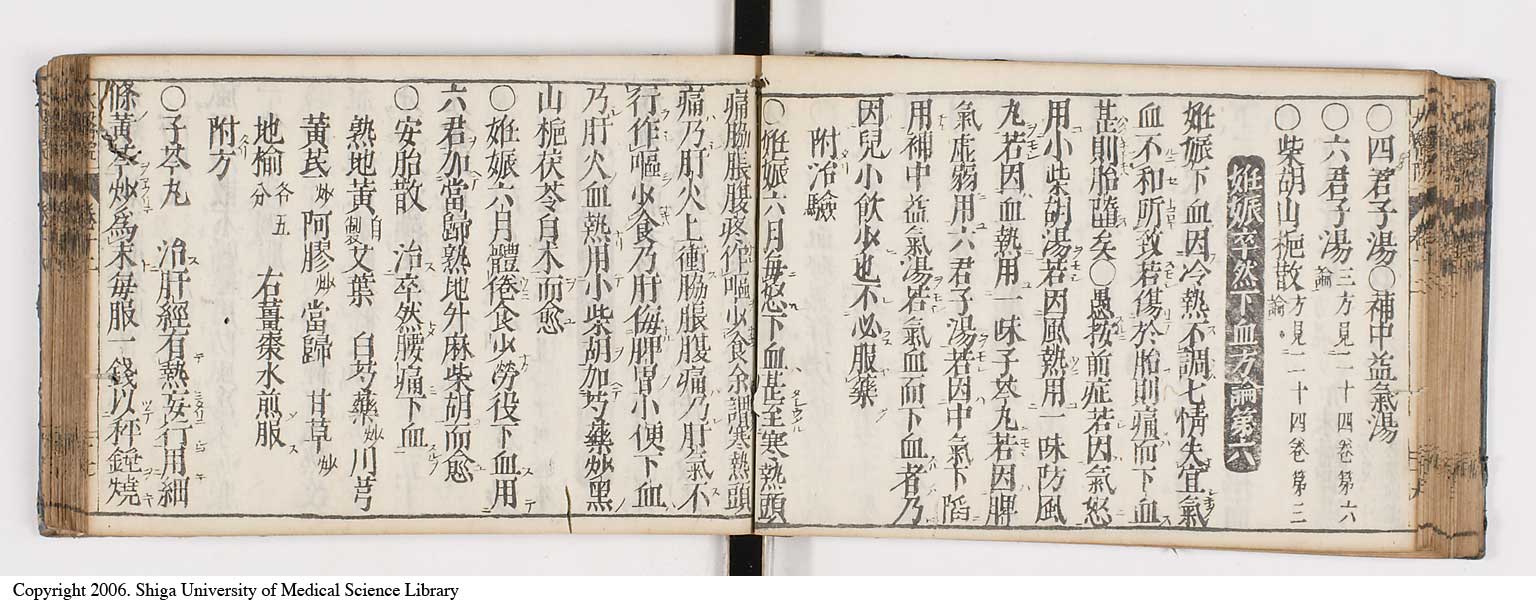 〇四君子湯〇補中益氣湯
〇六君子湯三方見二十四卷第六論
〇柴胡山梔散方見二十四卷第三論
妊娠卒然下血方論第六
妊娠下血因冷熱不調七情失宜氣
血不和所致若傷於胎則痛而下血
甚則胎墮矣〇愚按前症若因氣怒
用小柴胡湯若因風熱用一味防風
丸若因血熱用一味子芩丸若因脾
氣虛弱用六君子湯若因中氣下陷
用補中益氣湯若氣血而下血者乃
因兒小飲少也不必服藥
附治驗
〇妊娠六月每怒下血甚至寒熱頭
痛脇脹腹疼作嘔少食余謂寒熱頭
痛乃肝火上衝脇脹腹痛乃肝氣不
行作嘔少食乃肝侮脾胃小便下血
乃肝火血熱用小柴胡加芍藥炒黑
山梔茯苓白朮而愈
〇妊娠六月體倦食少勞役下血用
六君加當歸熟地升麻柴胡而愈
〇安胎散 治卒然腰痛下血
熟地黃 艾葉 白芍藥炒川芎
黃芪炒 阿膠炒 當歸 甘草炒
地榆各五分 右薑棗水煎服
附方
〇子芩丸 治肝經有熱妄行用細
條黃芩炒爲末每服一錢以秤錘燒